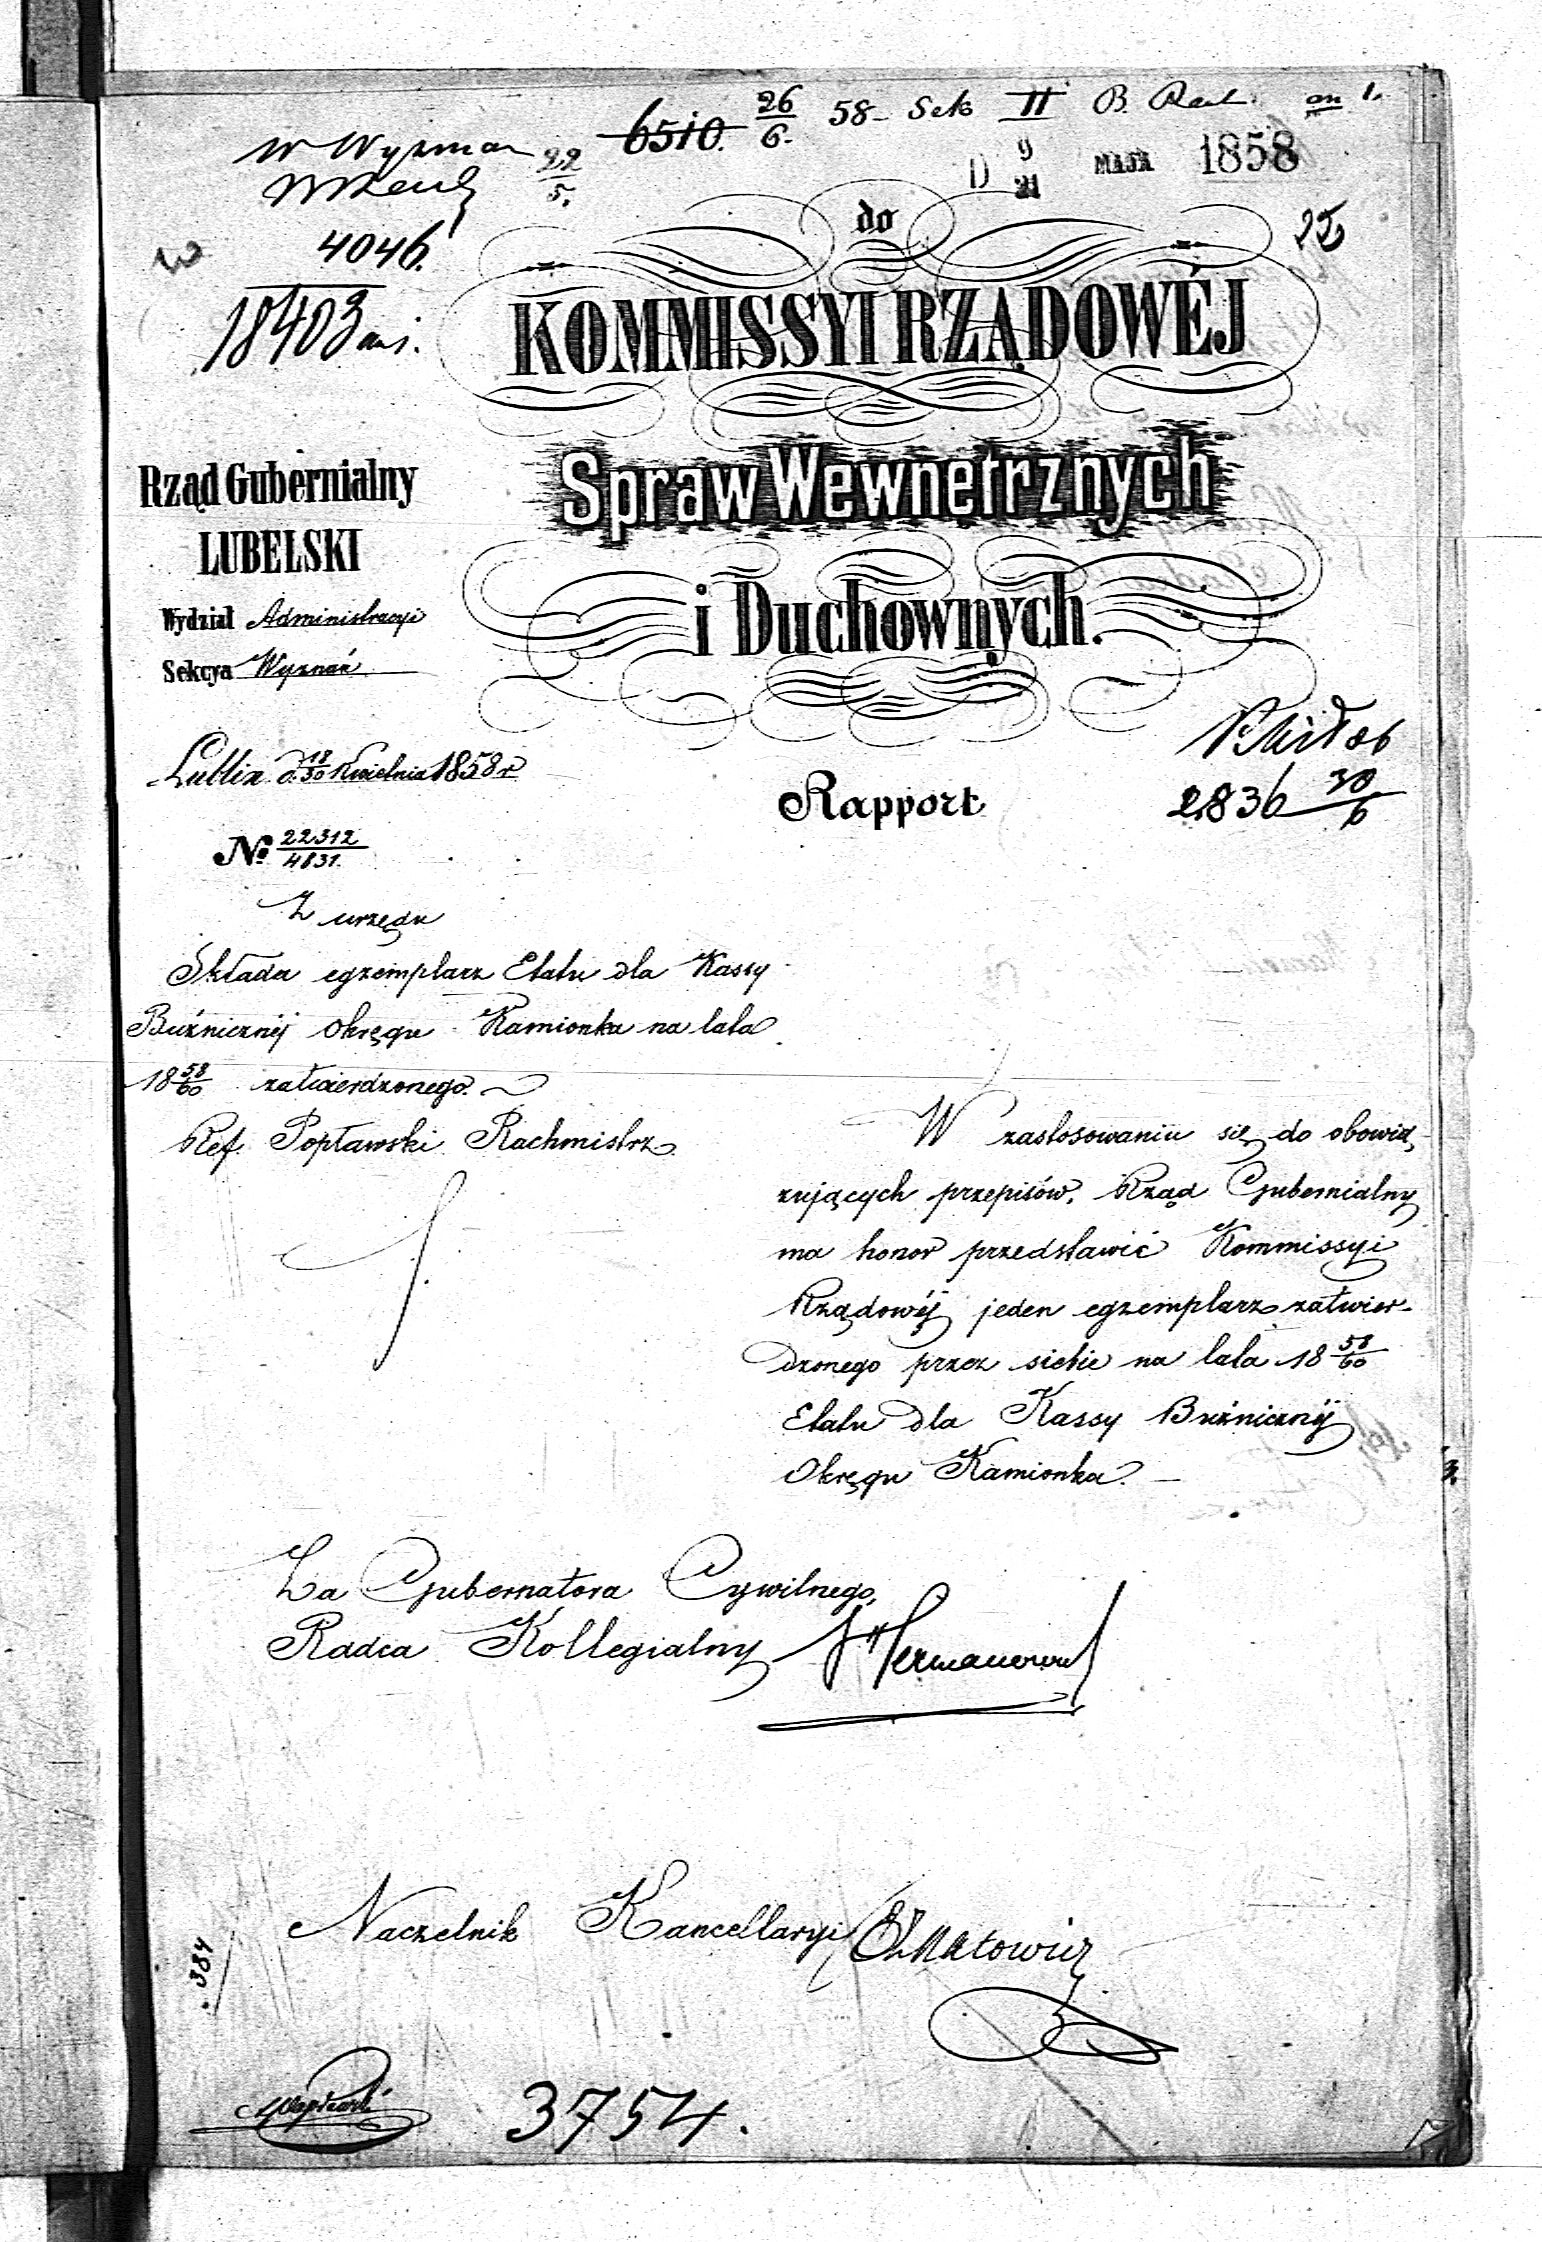 6510. 26/6. 58 - Sek II B.
W Wyznań 22/5.
D 9/21 MAJA 1858
do
4046.
18403
KOMMISSYI RZĄDOWÉJ
Rząd Gubernialny
LUBELSKI
Spraw Wewnetrznych
i Duchownych.
Wydział Administracyi
Sekcya Wyznań
Lublin d. 18/30 Kwietnia 1858 r
Rapport
2836 30/6
No. 22312/4831.
Z urzędu
Składa egzemplarz Etatu dla Kassy
Bużnicznéj Okręgu Kamionka na lata
18 58/60 zatwierdzonego.
Ref. Popławski Rachmistrz
W zastosowaniu się do obowią
zujących przepisów, Rząd Gubernialny
ma honor przedstawić Kommissyi
Rządowéj jeden egzemplarz zatwier-
dzonego przez siebie na lata 18 58/60
Etatu dla Kassy Bużnicznéj
Okręgu Kamionka. —
Za Gubernatora Cywilnego,
Radca Kollegialny
Naczelnik Kancellaryi
384
3754.